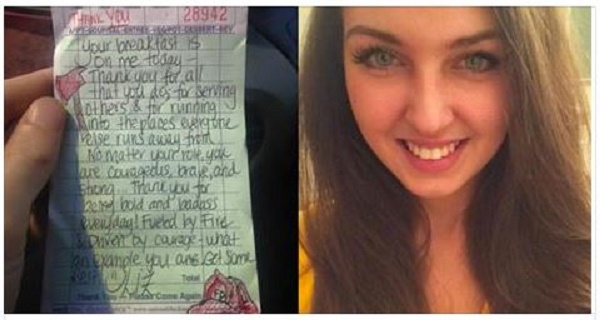 THANK YOU 28942
your breakfast is
on me today -
Thank you for all
that you do; for serving
others & for running
into the places everyone
else runs away from.
No matter your role, you
are courageous, brave, and
strong... Thank you for
being bold and badass
everyday! Fueled by Fire
& Driven by courage - what
an example you are. Get some
Liz
Total
Thank You - Please Come Again